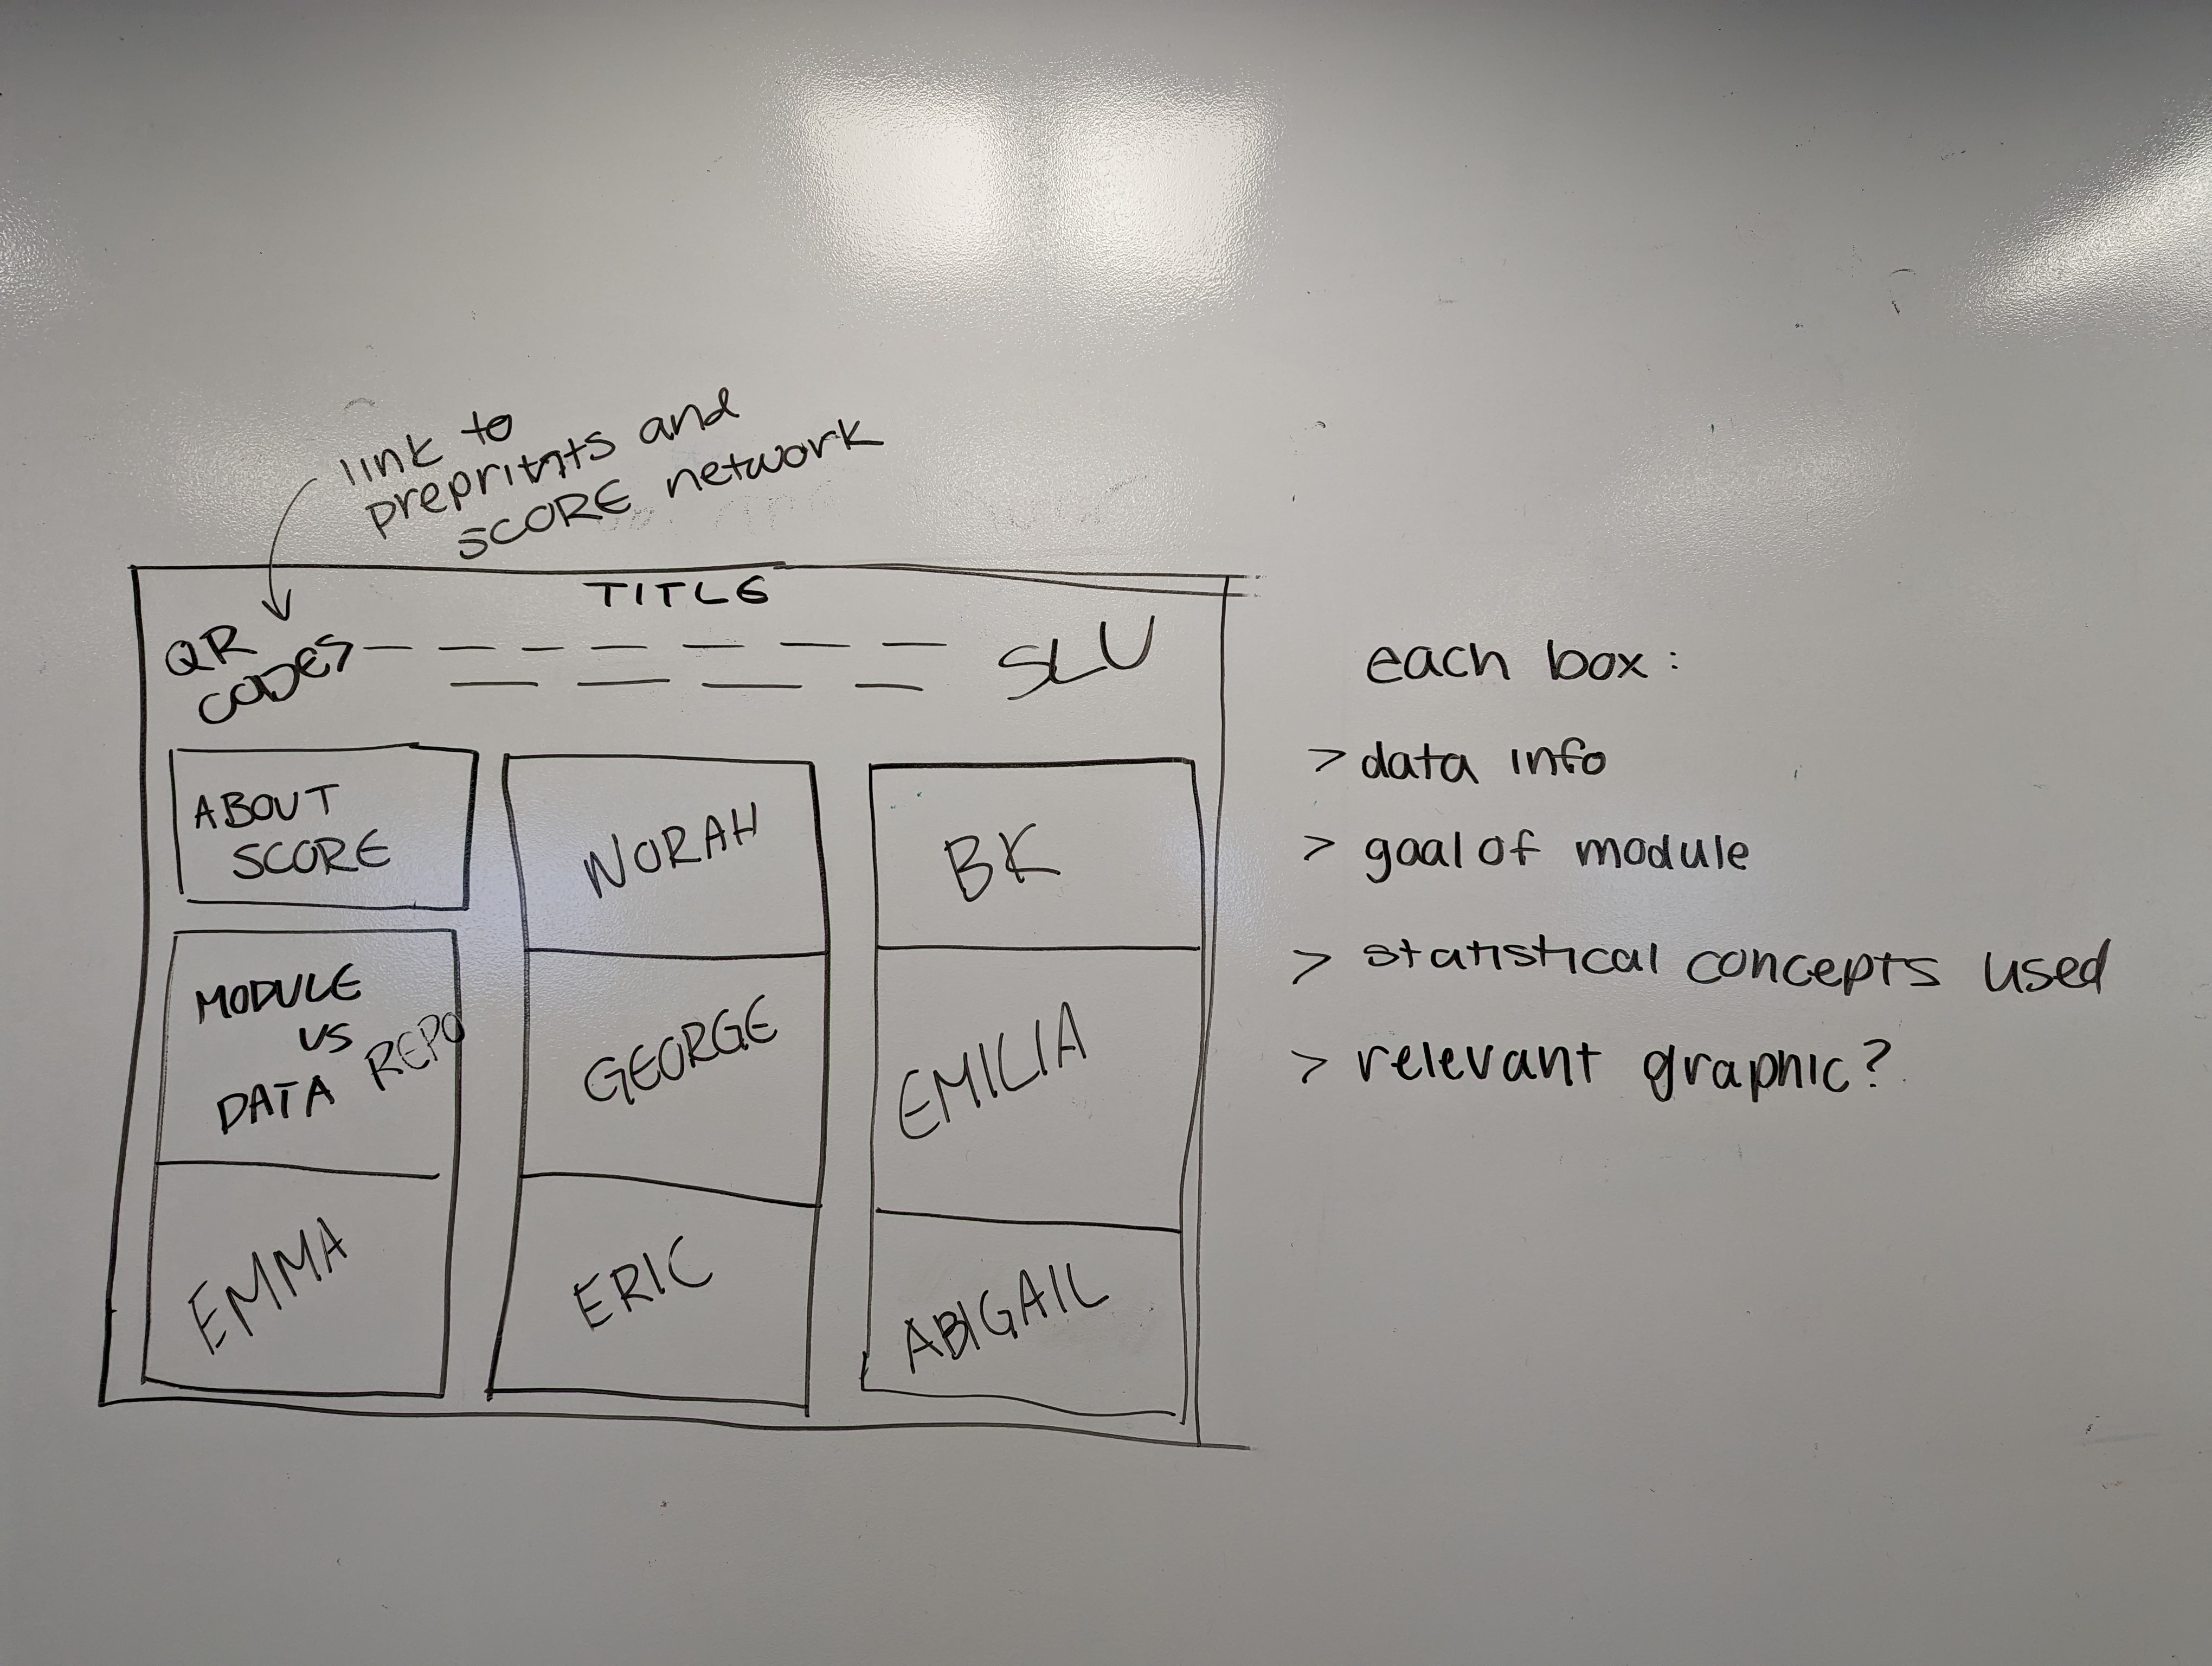 link to
preprints and
SCORE network
TITLE
QR
CODES
SLU
ABOUT
SCORE
MODULE
VS
DATA REPO
EMMA
NORAH
GEORGE
ERIC
BK
EMILIA
ABIGAIL
each box:
> data info
> goal of module
> statistical concepts used
> relevant graphic?